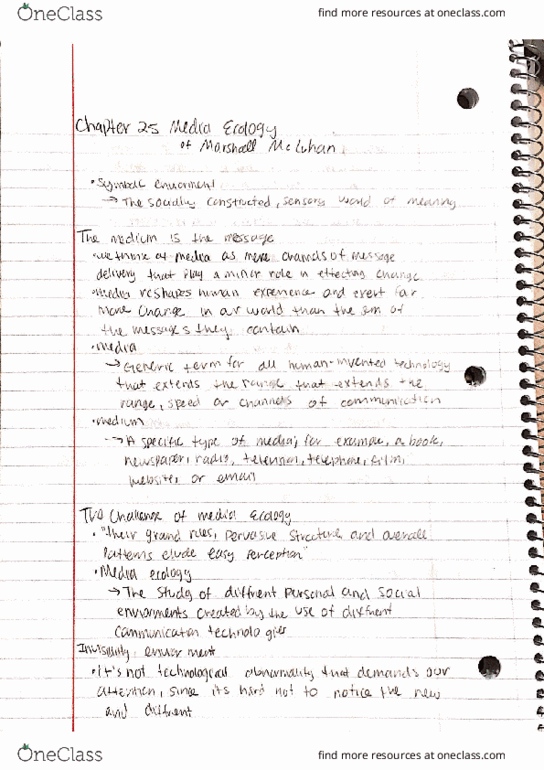 OneClass
find more resources at oneclass.com
Chapter 25 Media Ecology
of Marshall McLuhan
• Symbolic enviorment
→ The socially constructed, sensory world of meaning
The medium is the message
• We think of media as mere channels of message
delivery that play a minor role in effecting change
• Media reshapes human experience and exert far
more change in our world than the sum of
the messages they contain
• media
→ Generic term for all human-invented technology
that extends the range that extends the
range, speed or channels of communication
• medium
→ A specific type of media; for example, a book,
newspaper, radio, television, telephone, film,
website, or email
The Challenge of media Ecology
• "their grand rules, pervasive structure, and overall
patterns elude easy perception"
• Media ecology
→ The study of diffrent personal and social
enviorments created by the use of diffrent
communication technologies
Invisibility
• it's not technological abnormality that demands our
attention, since its hard not to notice the new
and diffrent
OneClass
find more resources at oneclass.com